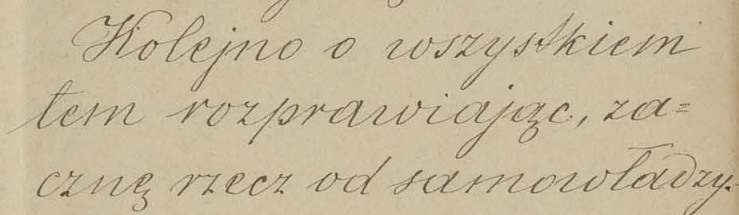 Kolejno o wszystkiem
tem rozprawiając, za=
cznę rzecz od samowładzy.